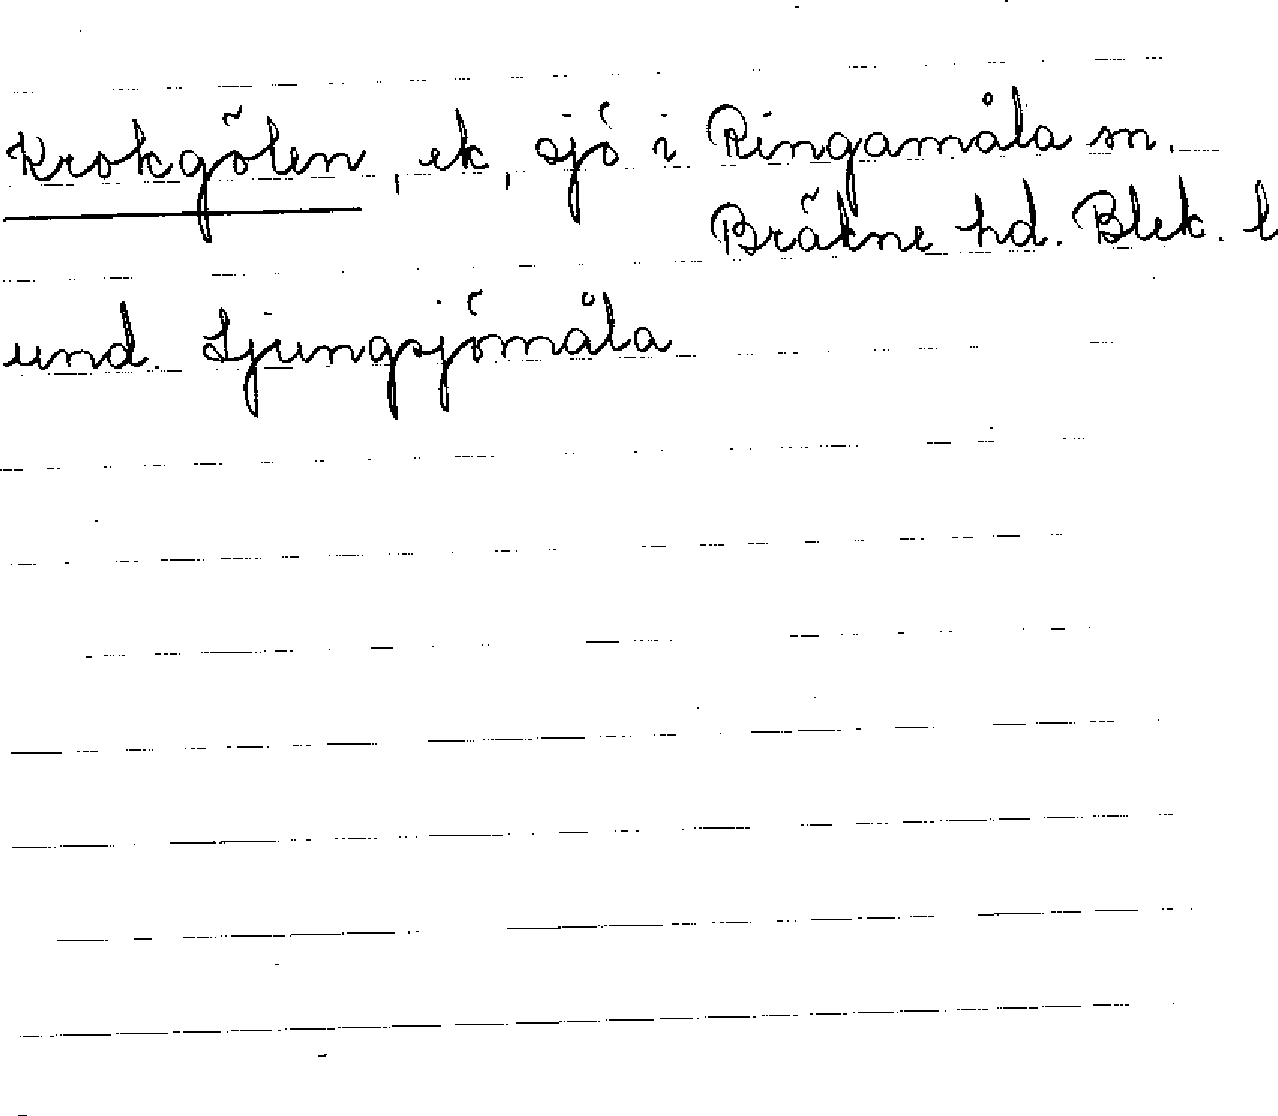 Krokgölen, ek, sjö i Ringamåla sn.
Bräkne hd. Blek. l
und. Ljungsjömåla